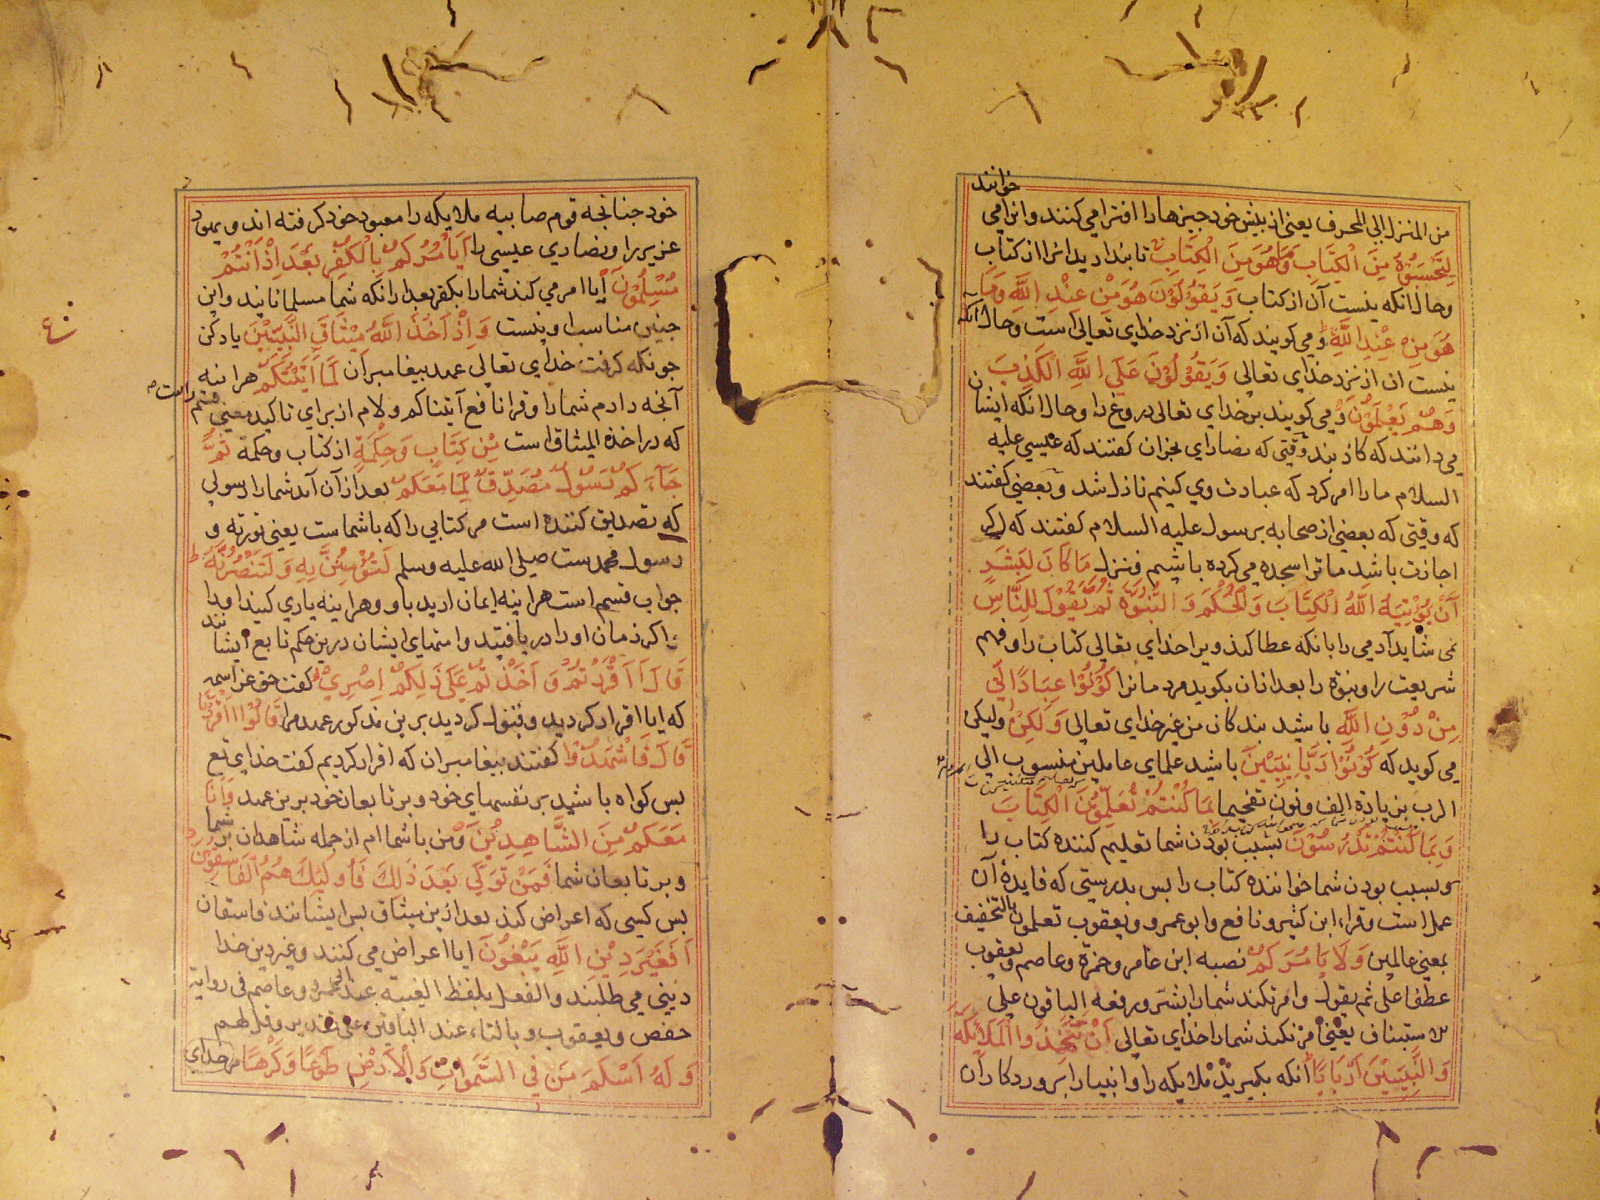 خوانند
من المنزل الی المحرف یعنی از پیش خود چیزها را افترا می کنند و انرا می
لِتَحْسَبُوهُ مِنَ الْكِتَابِ وَمَا هُوَ مِنَ الْكِتَابِ تا پندارید انرا از کتاب
و حال انکه نیست آن از کتاب وَيَقُولُونَ هُوَ مِنْ عِنْدِ اللَّهِ وَمَا
هُوَ مِنْ عِنْدِ اللَّهِ و می کویند که آن از نزد خدای تعالی است و حال آنکه
نیست ان از نزد خدای تعالی وَيَقُولُونَ عَلَى اللَّهِ الْكَذِبَ
وَهُمْ يَعْلَمُونَ و می کویند بر خدای تعالی دروغ را و حال انکه ایشان
می دانند که کاذبند وقتی که نصارای نجران کفتند که عیسی علیه
السلام ما را امر کرد که عبادت وی کنیم نازل شد و بعضی کفتند
که وقتی که بعضی از صحابه برسول علیه السلام کفتند که اکر
اجازت باشد ما ترا سجده می کرده باشیم فنزل مَا كَانَ لِبَشَرٍ
أَنْ يُؤْتِيَهُ اللَّهُ الْكِتَابَ وَالْحُكْمَ وَالنُّبُوَّةَ ثُمَّ يَقُولَ لِلنَّاسِ
نمی شاید آدمی را بانکه عطا کند ویرا خدای تعالی کتاب را و فهم
شریعت را و نبوة را بعد ازان بکوید مردمانرا كُونُوا عِبَادًا لِي
مِنْ دُونِ اللَّهِ باشید بندکان من غیر خدای تعالی وَلَكِنْ ولیکن
می کوید که كُونُوا رَبَّانِيِّينَ باشید علمای عاملین منسوب الی
الرب بزیادة الف و نون تفخیما بِمَا كُنْتُمْ تُعَلِّمُونَ الْكِتَابَ
وَبِمَا كُنْتُمْ تَدْرُسُونَ بسبب بودن شما تعلیم کننده کتاب را
و بسبب بودن شما خواننده کتاب را پس بدرستی که فایدهٔ آن
عمل است و قراء ابن کثیر و نافع و ابو عمرو و یعقوب تعلمون بالتخفیف
بمعنی عالمین وَلَا يَأْمُرَكُمْ نصبه ابن عامر و حمزة و عاصم و یعقوب
عطفا علی ثم یقول و امر نکند شما را بشر و رفعه الباقون علی
الاستیناف یعنی امر نکند شما را خدای تعالی أَنْ تَتَّخِذُوا الْمَلَائِكَةَ
وَالنَّبِيِّينَ أَرْبَابًا آنکه بکیرید ملایکه را و انبیا را پروردکاران
خود چنانچه قوم صابیه ملایکه را معبود خود کرفته اند و یهود
عزیر را و نصاری عیسی را أَيَأْمُرُكُمْ بِالْكُفْرِ بَعْدَ إِذْ أَنْتُمْ
مُسْلِمُونَ آیا امر می کند شما را بکفر بعد ازانکه شما مسلمانانید و این
چنین مناسب او نیست وَإِذْ أَخَذَ اللَّهُ مِيثَاقَ النَّبِيِّينَ یاد کن
چونکه کرفت خدای تعالی عهد پیغامبران لَمَا آتَيْتُكُمْ هراینه
آنچه دادم شما را و قرا نافع آتیناکم و لام از برای تاکید معنی قسم
که در اخذ المیثاق است مِنْ كِتَابٍ وَحِكْمَةٍ از کتاب و حکمة ثُمَّ
جَاءَكُمْ رَسُولٌ مُصَدِّقٌ لِمَا مَعَكُمْ بعد ازان آمد شما را رسولی
که تصدیق کننده است مر کتابی را که با شماست یعنی توریة و
رسول محمد ست صلی الله علیه وسلم لَتُؤْمِنُنَّ بِهِ وَلَتَنْصُرُنَّهُ
جواب قسم است هراینه ایمان ارید باو و هراینه یاری کنید او را
اکر زمان او را دریافتید و امتهای ایشان درین حکم تابع ایشانند
قَالَ أَأَقْرَرْتُمْ وَأَخَذْتُمْ عَلَى ذَلِكُمْ إِصْرِي کفت حق عز اسمه
که ایا اقرار کردید و قبول کردید برین مذکور عهد مرا قَالُوا أَقْرَرْنَا
قَالَ فَاشْهَدُوا کفتند پیغامبران که اقرار کردیم کفت خدای تع
پس کواه باشید بر نفسهای خود و بر تابعان خود برین عهد وَأَنَا
مَعَكُمْ مِنَ الشَّاهِدِينَ و من با شما ام از جمله شاهدان بر شما
و بر تابعان شما فَمَنْ تَوَلَّى بَعْدَ ذَلِكَ فَأُولَئِكَ هُمُ الْفَاسِقُونَ
پس کسی که اعراض کند بعد ازین میثاق پس ایشانند فاسقان
أَفَغَيْرَ دِينِ اللَّهِ يَبْغُونَ ایا اعراض می کنند و غیر دین خدا
دینی می طلبند و الفعل بلفظ الغیبة عند ابی عمرو و عاصم فی روایة
حفص و یعقوب و بالتاء عند الباقین علی تقدیر و قل لهم
وَلَهُ أَسْلَمَ مَنْ فِي السَّمَوَاتِ وَالْأَرْضِ طَوْعًا وَكَرْهًا مر خدای